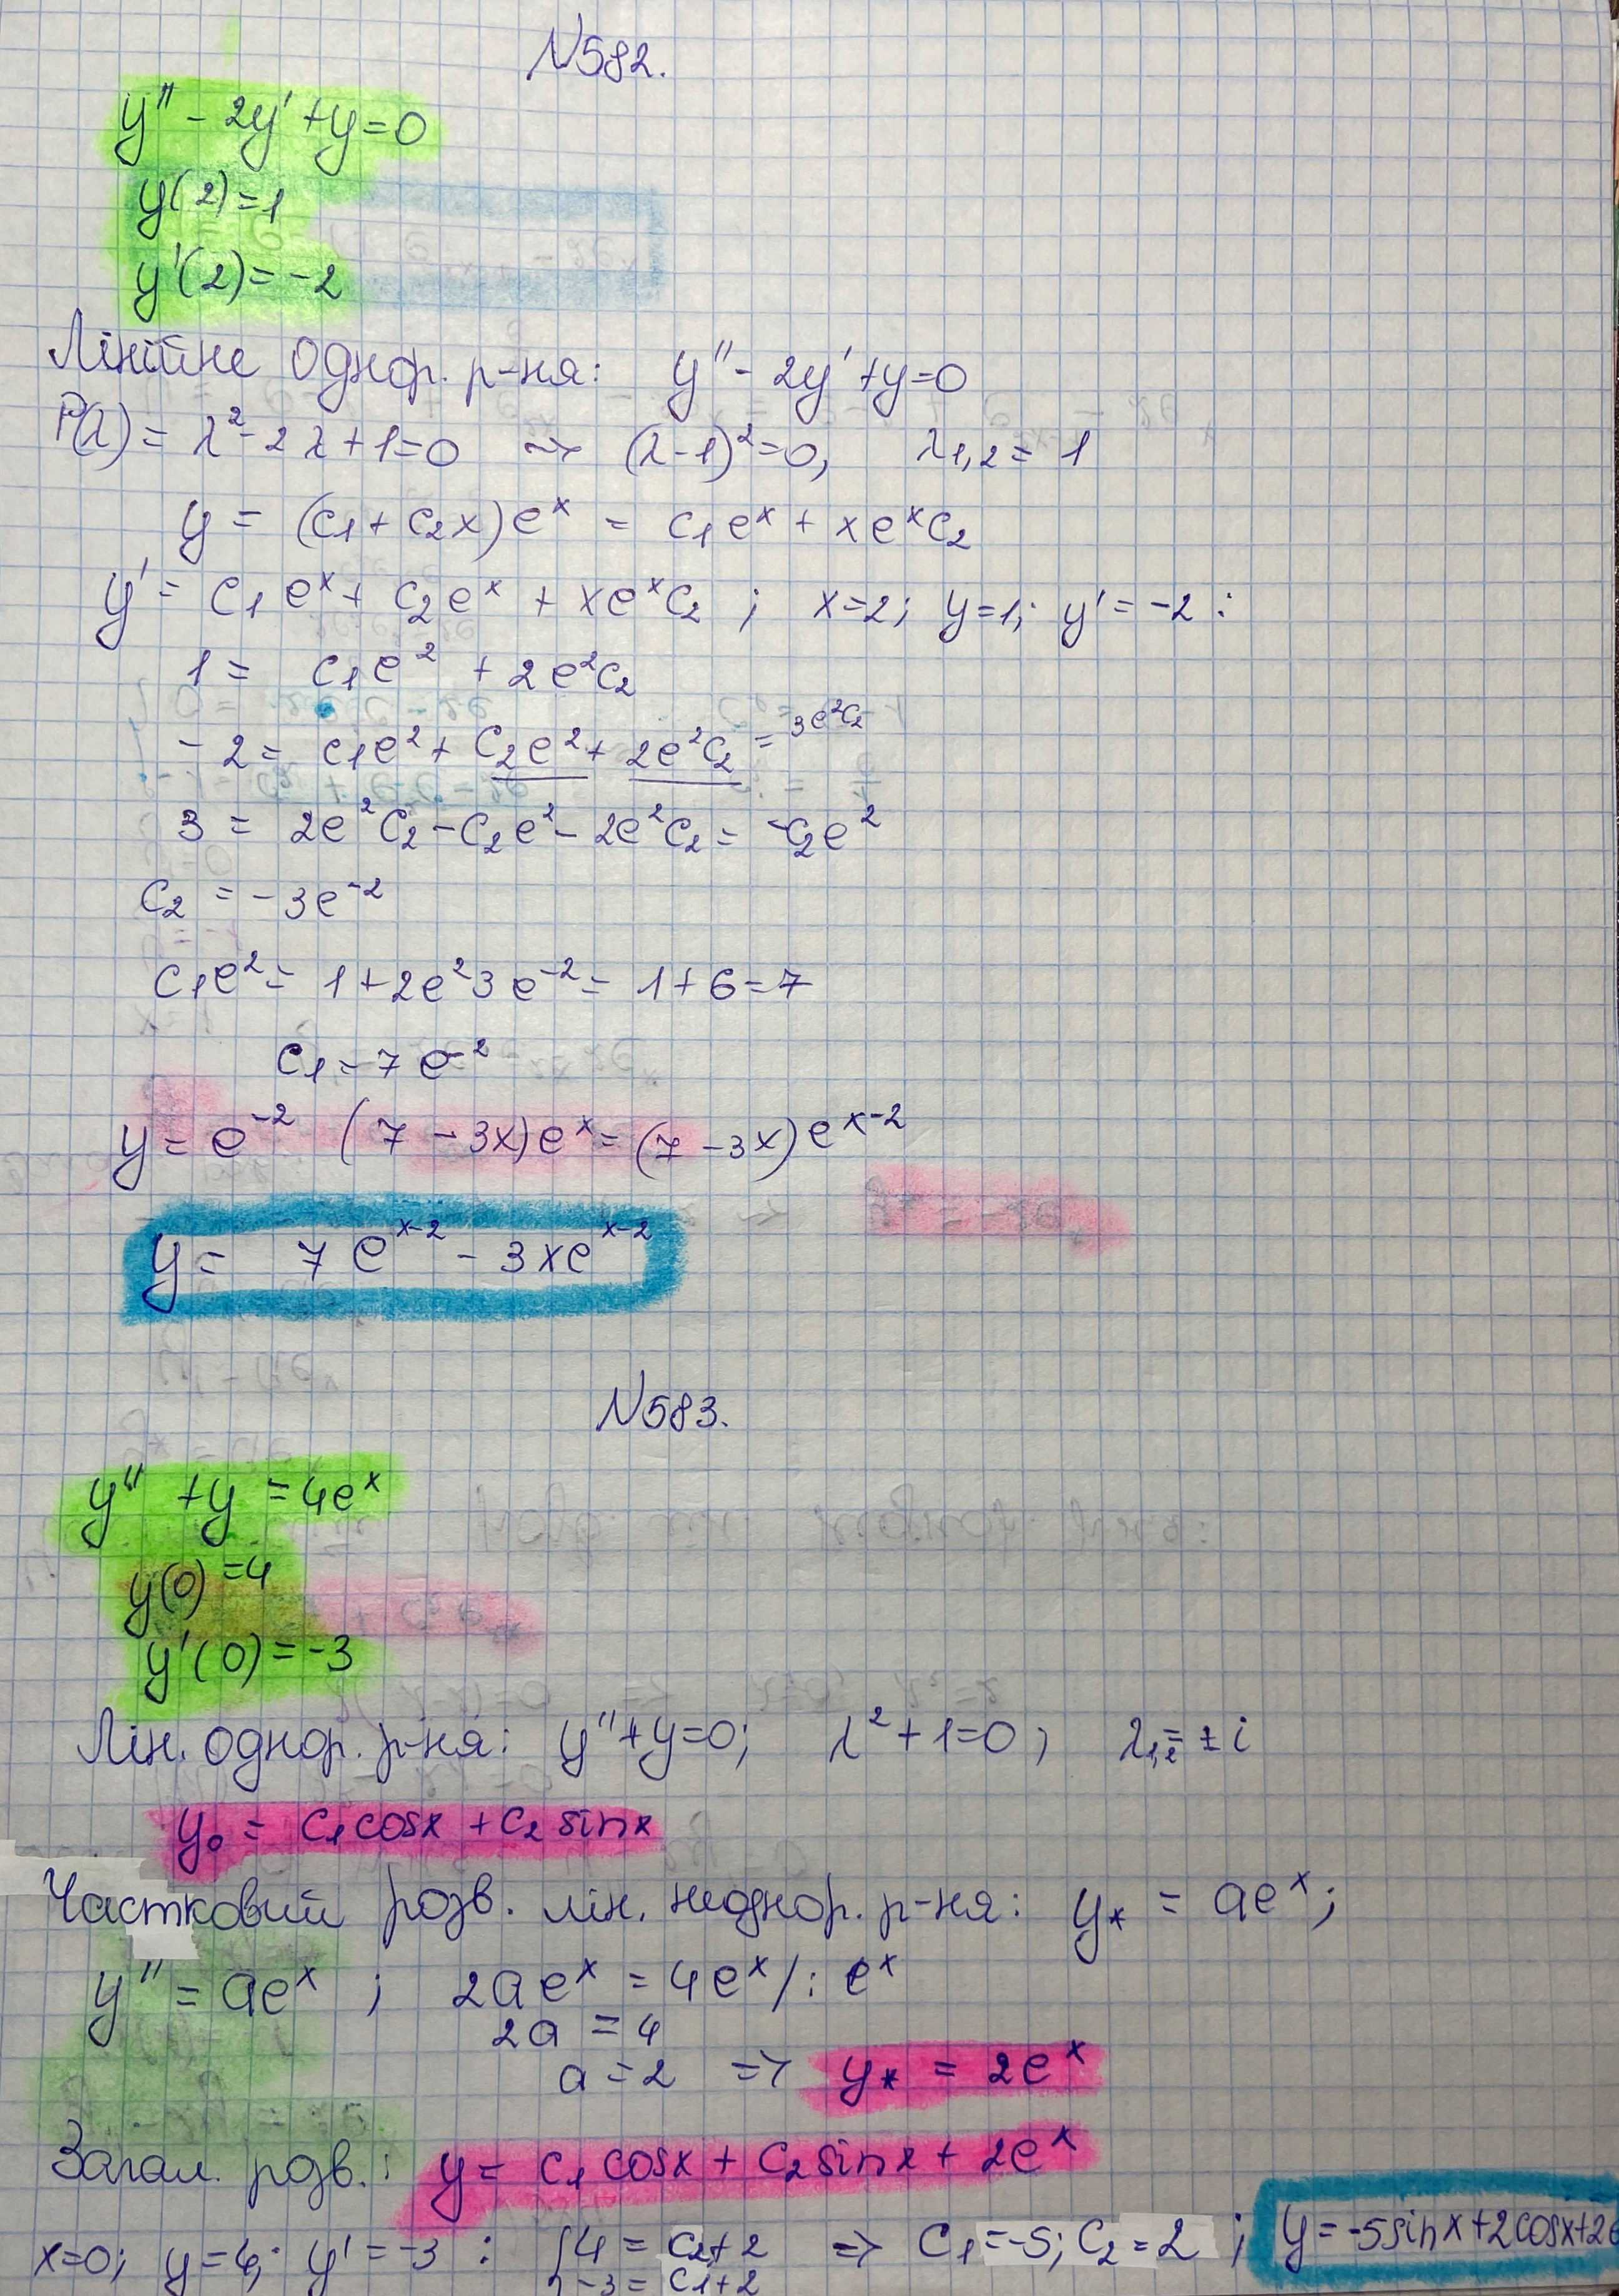 N582.
y'' - 2y' + y = 0
y(2) = 1
y'(2) = -2
Лінійне однор. р-ня: y'' - 2y' + y = 0
P(λ) = λ² - 2λ + 1 = 0 ~> (λ-1)² = 0, λ1,2 = 1
y = (c1 + c2x)e^x = c1e^x + xe^xc2
y' = c1e^x + c2e^x + xe^xc2 ; x=2; y=1; y' = -2 :
1 = c1e² + 2e²c2
-2 = c1e² + c2e² + 2e²c2 = 3e²c2
3 = 2e²c2 - c2e² - 2e²c2 = -c2e²
c2 = -3e^-2
c1e² = 1 + 2e²3e^-2 = 1 + 6 = 7
c1 = 7e^-2
y = e^-2 (7 - 3x)e^x = (7 - 3x)e^x-2
y = 7e^x-2 - 3xe^x-2
N583.
y'' + y = 4e^x
y(0) = 4
y'(0) = -3
Лін. однор. р-ня: y'' + y = 0; λ² + 1 = 0; λ1,2 = ±i
y₀ = c1cosx + c2sinx
Частковий розв. лін. неоднор. р-ня: y* = ae^x;
y'' = ae^x ; 2ae^x = 4e^x /: e^x
2a = 4
a = 2 => y* = 2e^x
Загал. розв.: y = c1cosx + c2sinx + 2e^x
x=0; y=4; y' = -3 : { 4 = c2 + 2 => c1 = -5; c2 = 2 ; y = -5sinx + 2cosx + 2e
-3 = c1 + 2